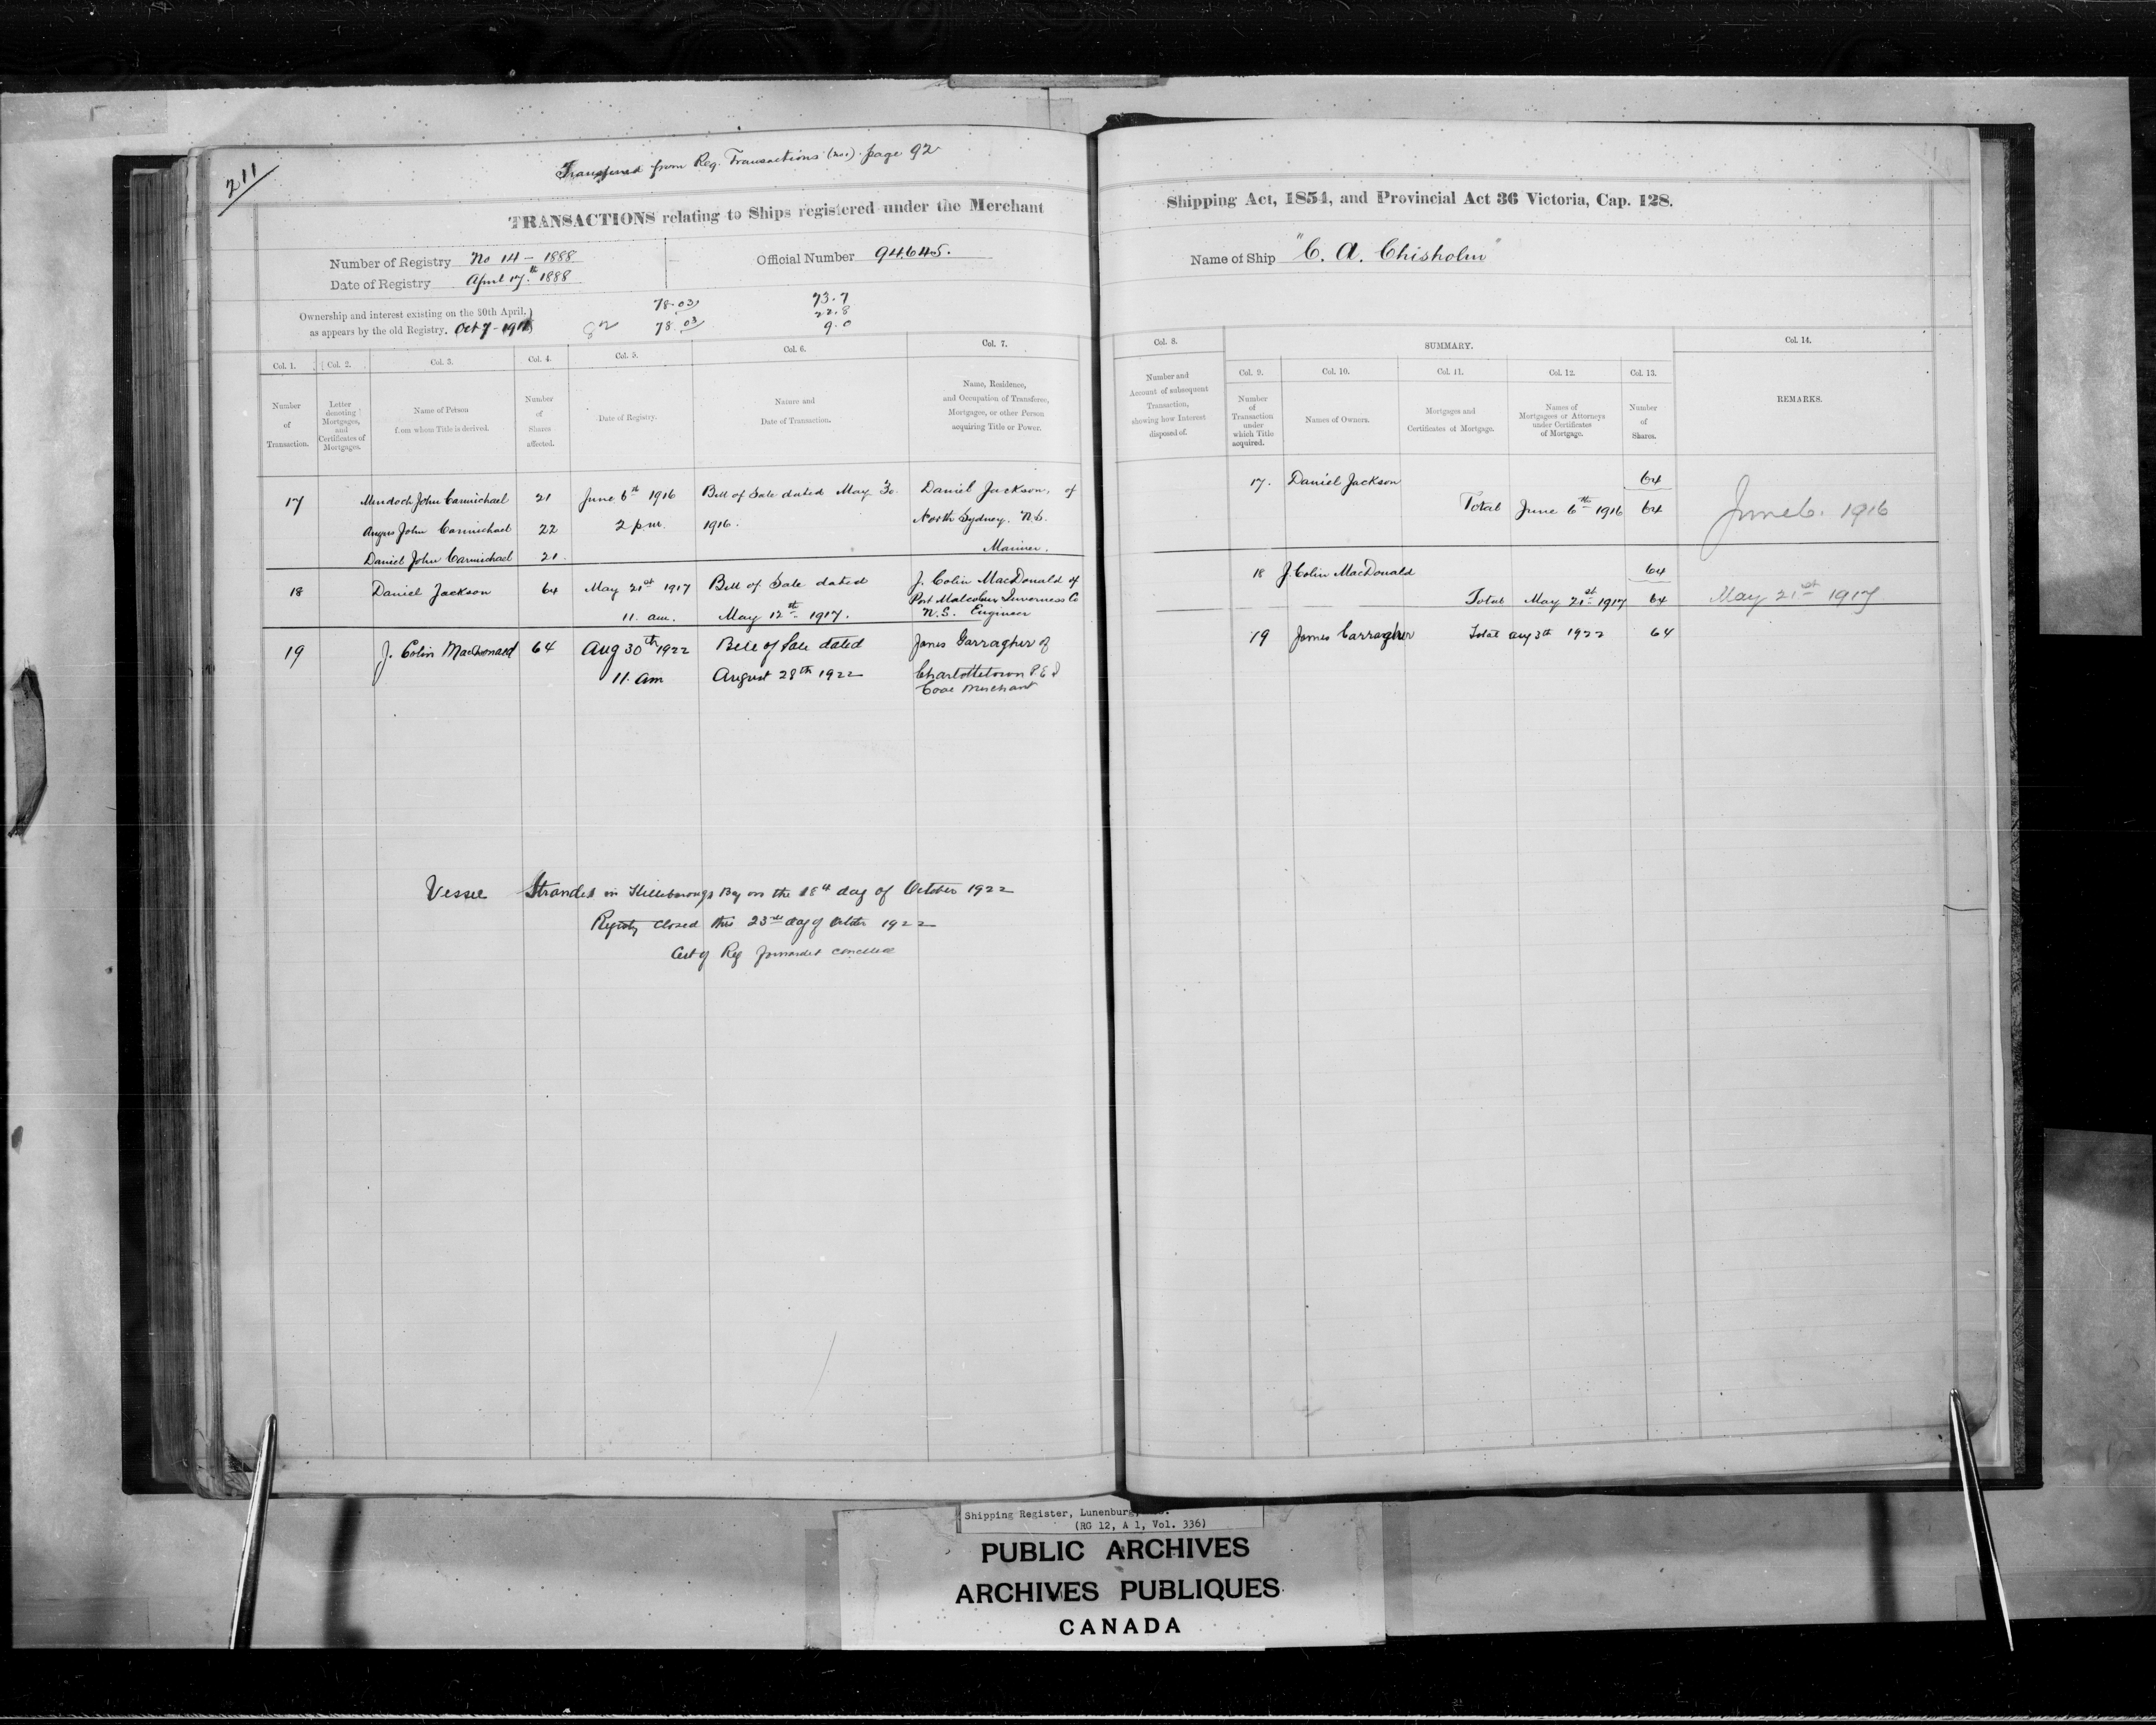 211
Transferred from Reg. Transactions (no 1) page 92
TRANSACTIONS relating to Ships registered under the Merchant
Number of Registry No 14 - 1888
Date of Registry April 17th 1888
Official Number 94645.
Ownership and interest existing on the 30th April,
as appears by the old Registry. Oct 7 -
78.03
78.03
73.7
22.8
9.0
Col. 1. Col. 2. Col. 3. Col. 4. Col. 5. Col. 6. Col. 7.
Number of Transaction.
Letter denoting Mortgages, and Certificates of Mortgages.
Name of Person from whom Title is derived.
Number of Shares affected.
Date of Registry.
Nature and Date of Transaction.
Name, Residence, and Occupation of Transferee, Mortgagee, or other Person acquiring Title or Power.
17 Murdoch John Carmichael 21 June 6th 1916 Bill of Sale dated May 30 Daniel Jackson, of
Angus John Carmichael 22 2 p.m. 1916. North Sydney. N.S.
Daniel John Carmichael 21. Mariner.
18 Daniel Jackson 64 May 21st 1917 Bill of Sale dated J. Colin MacDonald of
Port Malcolm Inverness Co
11. am. May 12th 1917. N.S. Engineer
19 J. Colin MacDonald 64 Aug 30th 1922 Bill of Sale dated James Garragher of
11. am August 28th 1922 Charlottetown P E I
Coal Merchant
Vessel Stranded in Hillsborough Bay on the 18th day of October 1922
Registry closed this 23rd day of October 1922
Cert of Reg forwarded cancelled
Shipping Act, 1854, and Provincial Act 36 Victoria, Cap. 128.
Name of Ship "C. A. Chisholm"
Col. 8. SUMMARY. Col. 14.
Col. 9. Col. 10. Col. 11. Col. 12. Col. 13.
Number and Account of subsequent Transaction, showing how Interest disposed of.
Number of Transaction under which Title acquired.
Names of Owners.
Mortgages and Certificates of Mortgage.
Names of Mortgagees or Attorneys under Certificates of Mortgage.
Number of Shares.
REMARKS.
17. Daniel Jackson 64
Total June 6th 1916 64 June 6. 1916
18 J. Colin MacDonald 64
Total May 21st 1917 64 May 21st 1917
19 James Carragher Total Aug 3th 1922 64
Shipping Register, Lunenburg,
(RG 12, A 1, Vol. 336)
PUBLIC ARCHIVES
ARCHIVES PUBLIQUES
CANADA